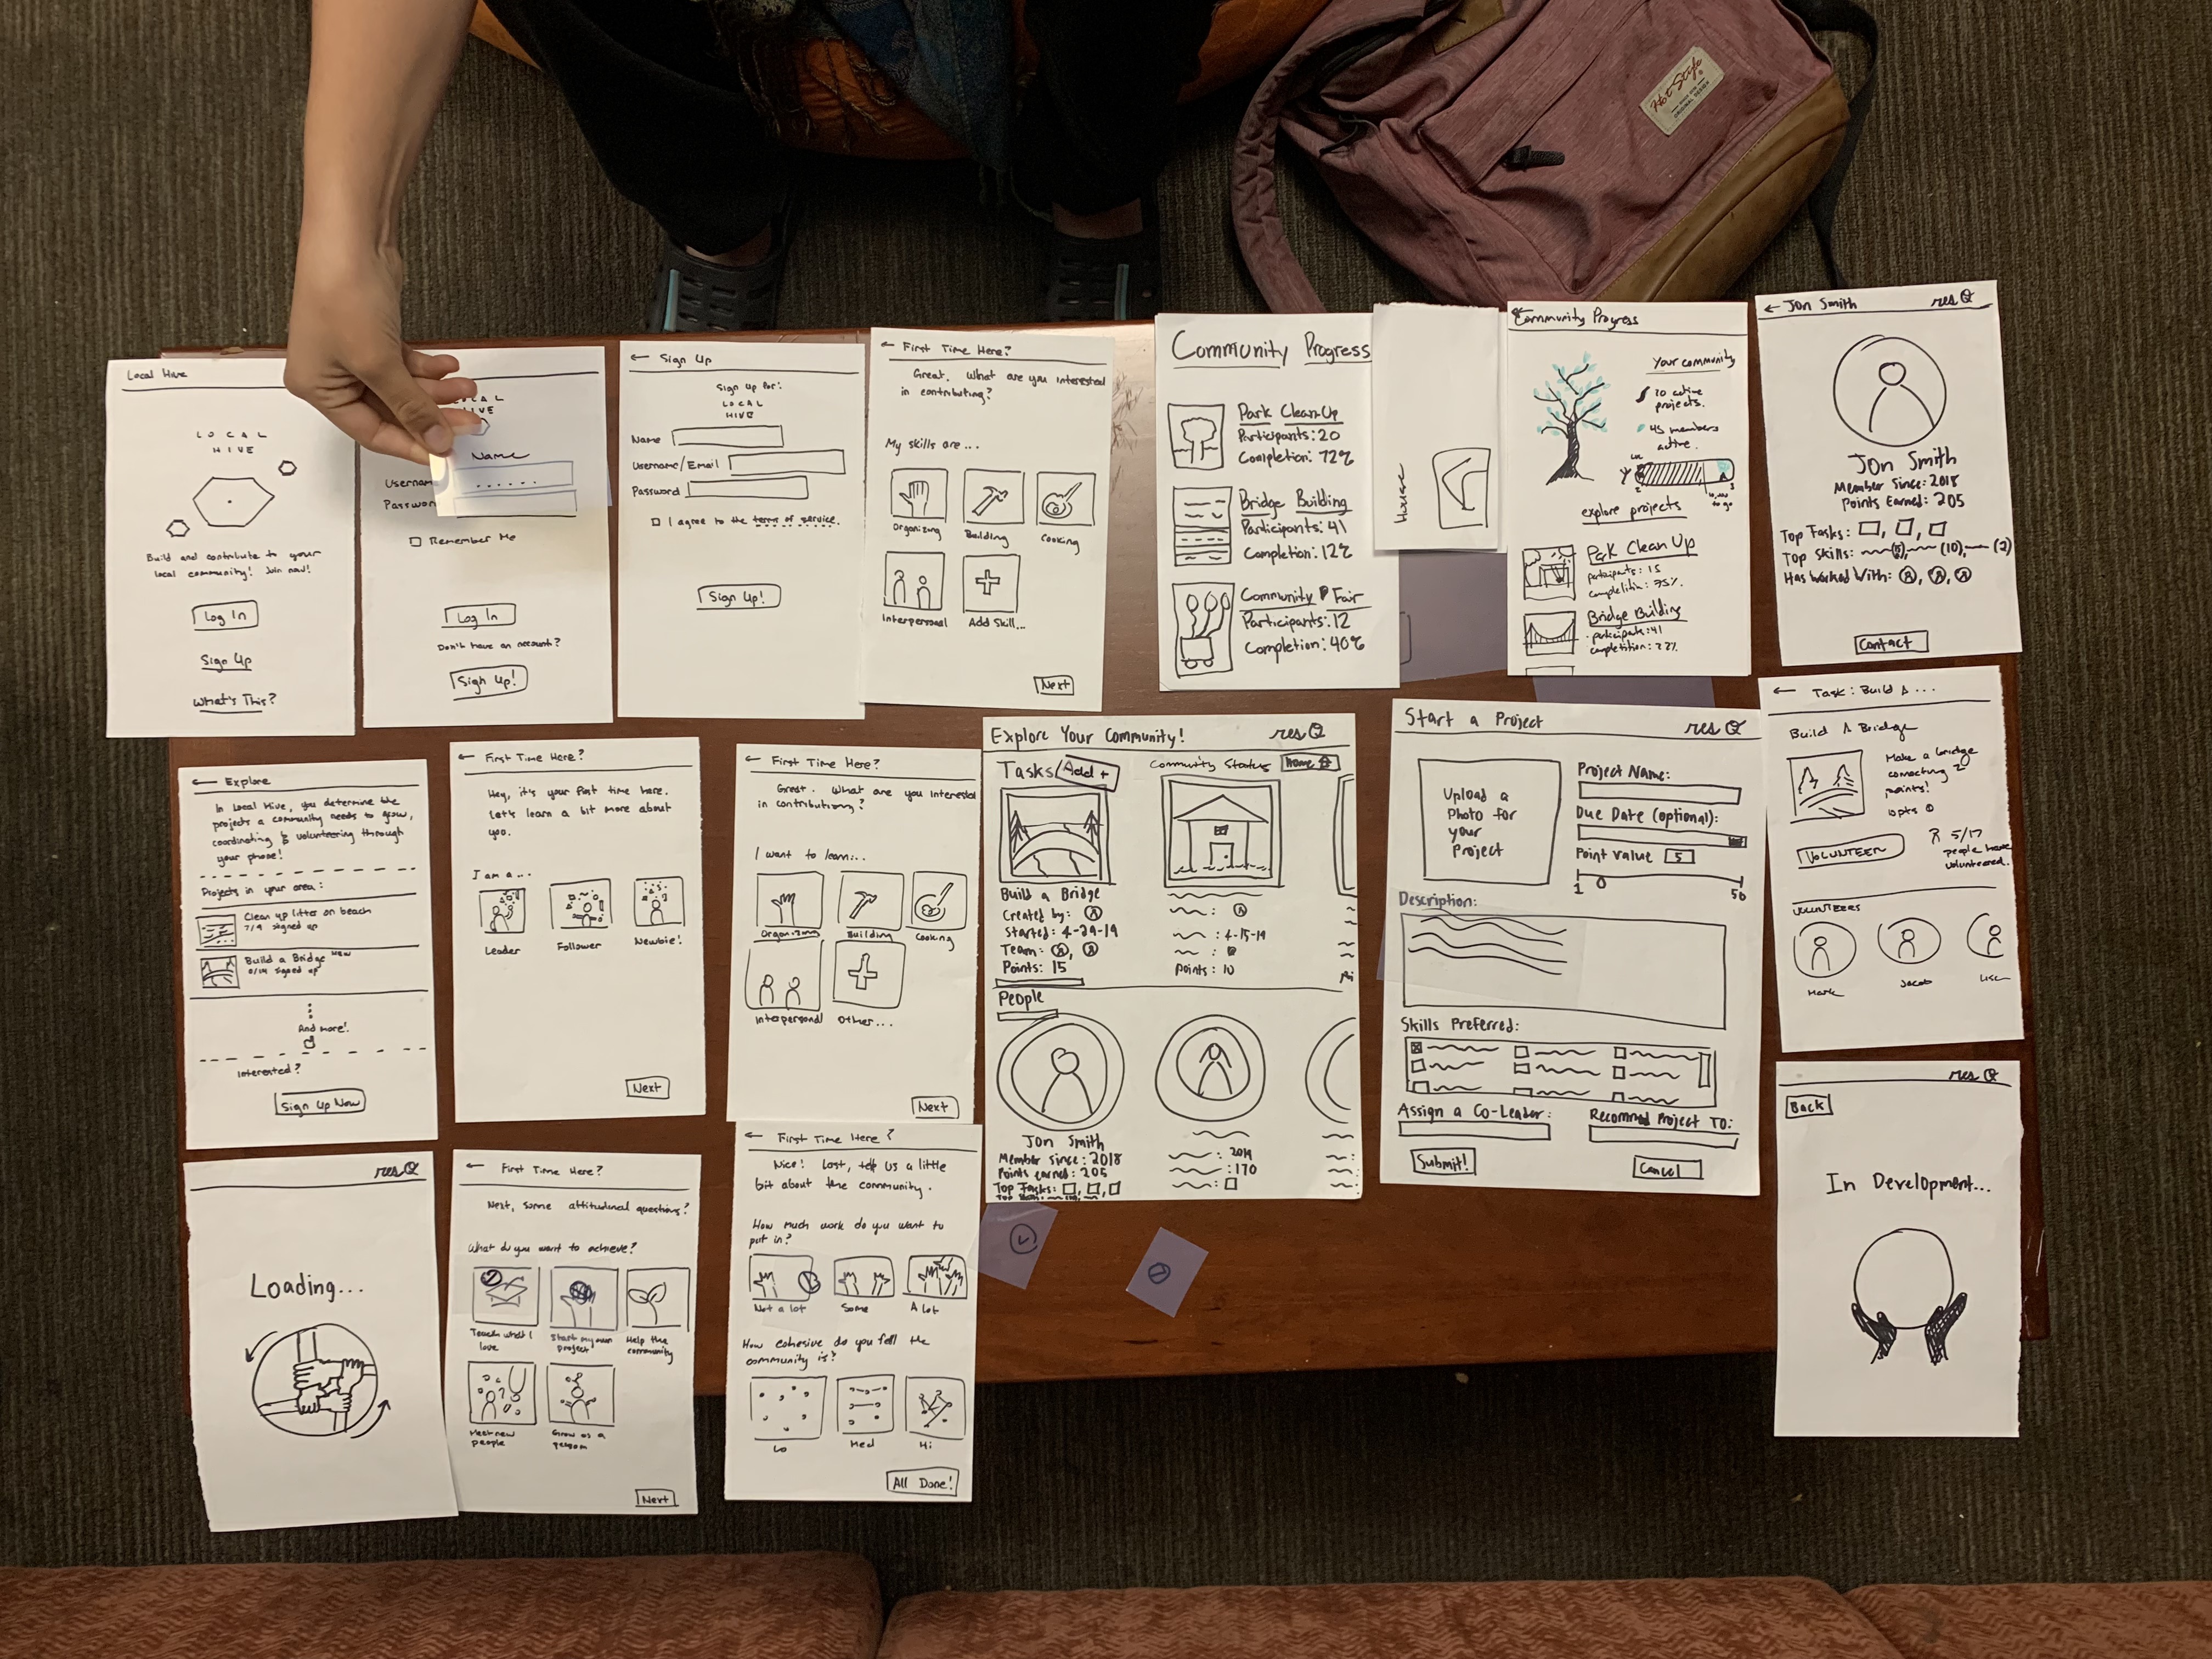 Hot-Style
ORIGINAL DESIGN
Local Hive
LOCAL
HIVE
Build and contribute to your
local community! Join now!
Log In
Sign Up
What's This?
HIVE
Name
Usernam
Passwor
Remember Me
Log In
Don't have an account?
Sign Up!
← Sign Up
Sign up for:
LOCAL
HIVE
Name
Username/Email
Password
I agree to the terms of service.
Sign Up!
← First Time Here?
Great. What are you interested
in contributing?
My skills are...
Organizing
Building
Cooking
Interpersonal
Add Skill...
Next
Community Progress
Park Clean-Up
Participants: 20
Completion: 72%
Bridge Building
Participants: 41
Completion: 12%
Community Fair
Participants: 12
Completion: 40%
House
Community Progress
Your community
20 active
projects.
45 members
active.
to go
explore projects
Park Clean Up
participants: 15
Bridge Building
participants: 41
← Jon Smith
resQ
Jon Smith
Member Since: 2018
Points Earned: 205
Top Tasks:
Top Skills: (10), (2)
Has Worked With:
Contact
← Explore
In Local Hive, you determine the
projects a community needs to grow,
coordinating & volunteering through
your phone!
Projects in your area:
Clean up litter on beach
7/9 signed up
Build a Bridge NEW
0/14 signed up
And more!
Interested?
Sign Up Now
← First Time Here?
Hey, it's your first time here.
Let's learn a bit more about
you.
I am a...
Leader
Follower
Newbie!
Next
← First Time Here?
Great. What are you interested
in contributing?
I want to learn...
Organizing
Building
Cooking
Interpersonal
Other...
Next
Explore Your Community!
resQ
Tasks
Add +
Community Status
Home
Build a Bridge
Created by:
Started: 4-29-19
Team:
Points: 15
: 4-15-19
points: 10
People
Jon Smith
Member Since: 2018
Points earned: 205
Top Tasks:
2019
: 170
Start a Project
resQ
Upload a
Photo for
your
Project
Project Name:
Due Date (optional):
Point Value 5
1
50
Description:
Skills Preferred:
Assign a Co-Leader:
Recommend Project TO:
Submit!
Cancel
← Task: Build A ...
Build A Bridge
Make a bridge
connecting 2
points!
10pts
VOLUNTEER
5/17
people have
volunteered.
VOLUNTEERS
Mark
Jacob
resQ
Loading...
← First Time Here?
Next, some attitudinal questions?
What do you want to achieve?
Teach what I
love
Start my own
project
Help the
community
Meet new
people
Grow as a
person
Next
← First Time Here?
Nice! Last, tell us a little
bit about the community.
How much work do you want to
put in?
Not a lot
Some
A lot
How cohesive do you fell the
community is?
Lo
Med
Hi
All Done!
resQ
Back
In Development...